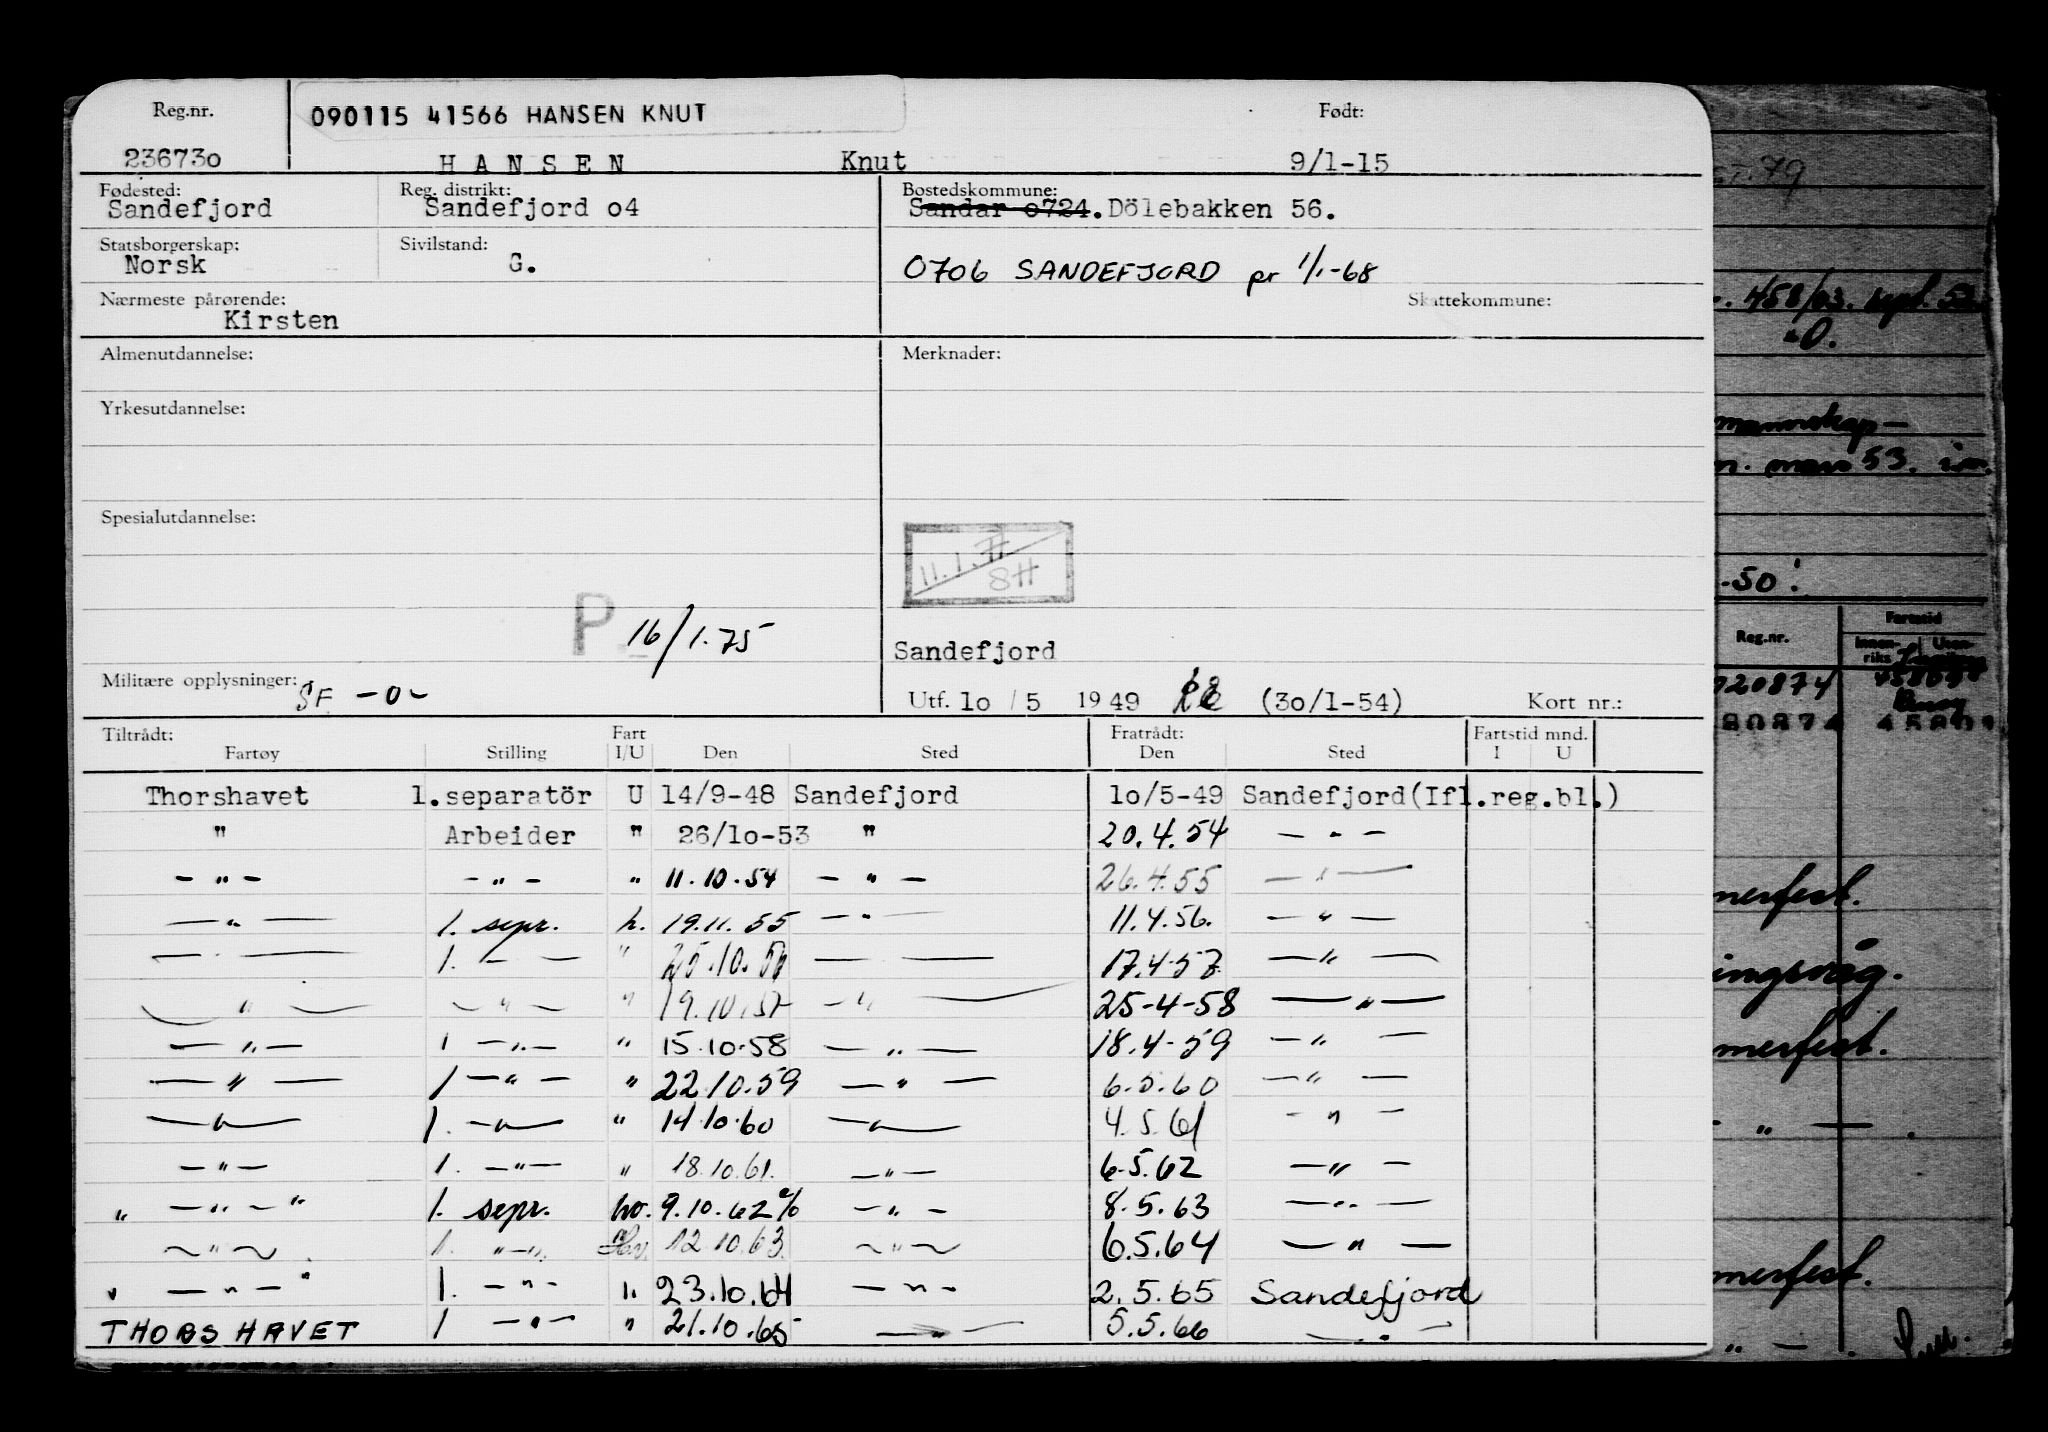 Reg.nr. 090115 41566 HANSEN KNUT Født:
236730 HANSEN Knut 9/1-15
Fødested: Reg. distrikt: Bostedskommune:
Sandefjord Sandefjord o4 Sandar o724. Dölebakken 56.
Statsborgerskap: Sivilstand:
Norsk G. 0706 SANDEFJORD pr 1/1-68
Nærmeste pårørende: Skattekommune:
Kirsten
Almenutdannelse: Merknader:
Yrkesutdannelse:
Spesialutdannelse:
8H
P 16/1.75
Sandefjord
Militære opplysninger: SF -0-
Utf. lo / 5 1949 (3o/1-54) Kort nr.:
Tiltrådt: Fart Fratrådt: Fartstid mnd.
Fartøy Stilling I/U Den Sted Den Sted I U
Thorshavet 1.separatör U 14/9-48 Sandefjord lo/5-49 Sandefjord(Ifl.reg.bl.)
" Arbeider " 26/lo-53 " 20.4.54 - " -
- " - - " - " 11.10.54 - " - 26.4.55 - " -
- " - 1. sepr. h. 19.11.55 - " - 11.4.56. - " -
- " - 1. - " - " 25.10.56 - - 17.4-57 - " -
- " - - " - " 19.10.57 - " - 25-4-58 - " -
- " - 1 - " - " 15.10.58 - " - 18.4-59 - " -
- " - 1 - " - " 22.10.59 - " - 6.5.60 - " -
- " - 1. - " - " 14.10.60 - " - 4.5.61 - " -
- " - 1. - " - " 18.10.61. - " - 6.5.62 - " -
" - " - " 1. sepr. hv. 9.10.62 - " - 8.5.63 - " -
- " - 1. " - " Hv. 12.10.63. - " - 6.5.64 - " -
" - " - " 1. - " - " 23.10.64 - " - 2.5.65 Sandefjord
THORSHAVET 1 - " - " 21.10.65 - " - 5.5.66 - " -
79
. 458/53. sept. 52.
-0.
mannskap-
n. mars 53.
-50.
Fartstid
Reg.nr. Innen-riks Uten-
020874
80874 45801
merfest.
ingsvåg.
merfest.
- " - .
merfest.
" - .